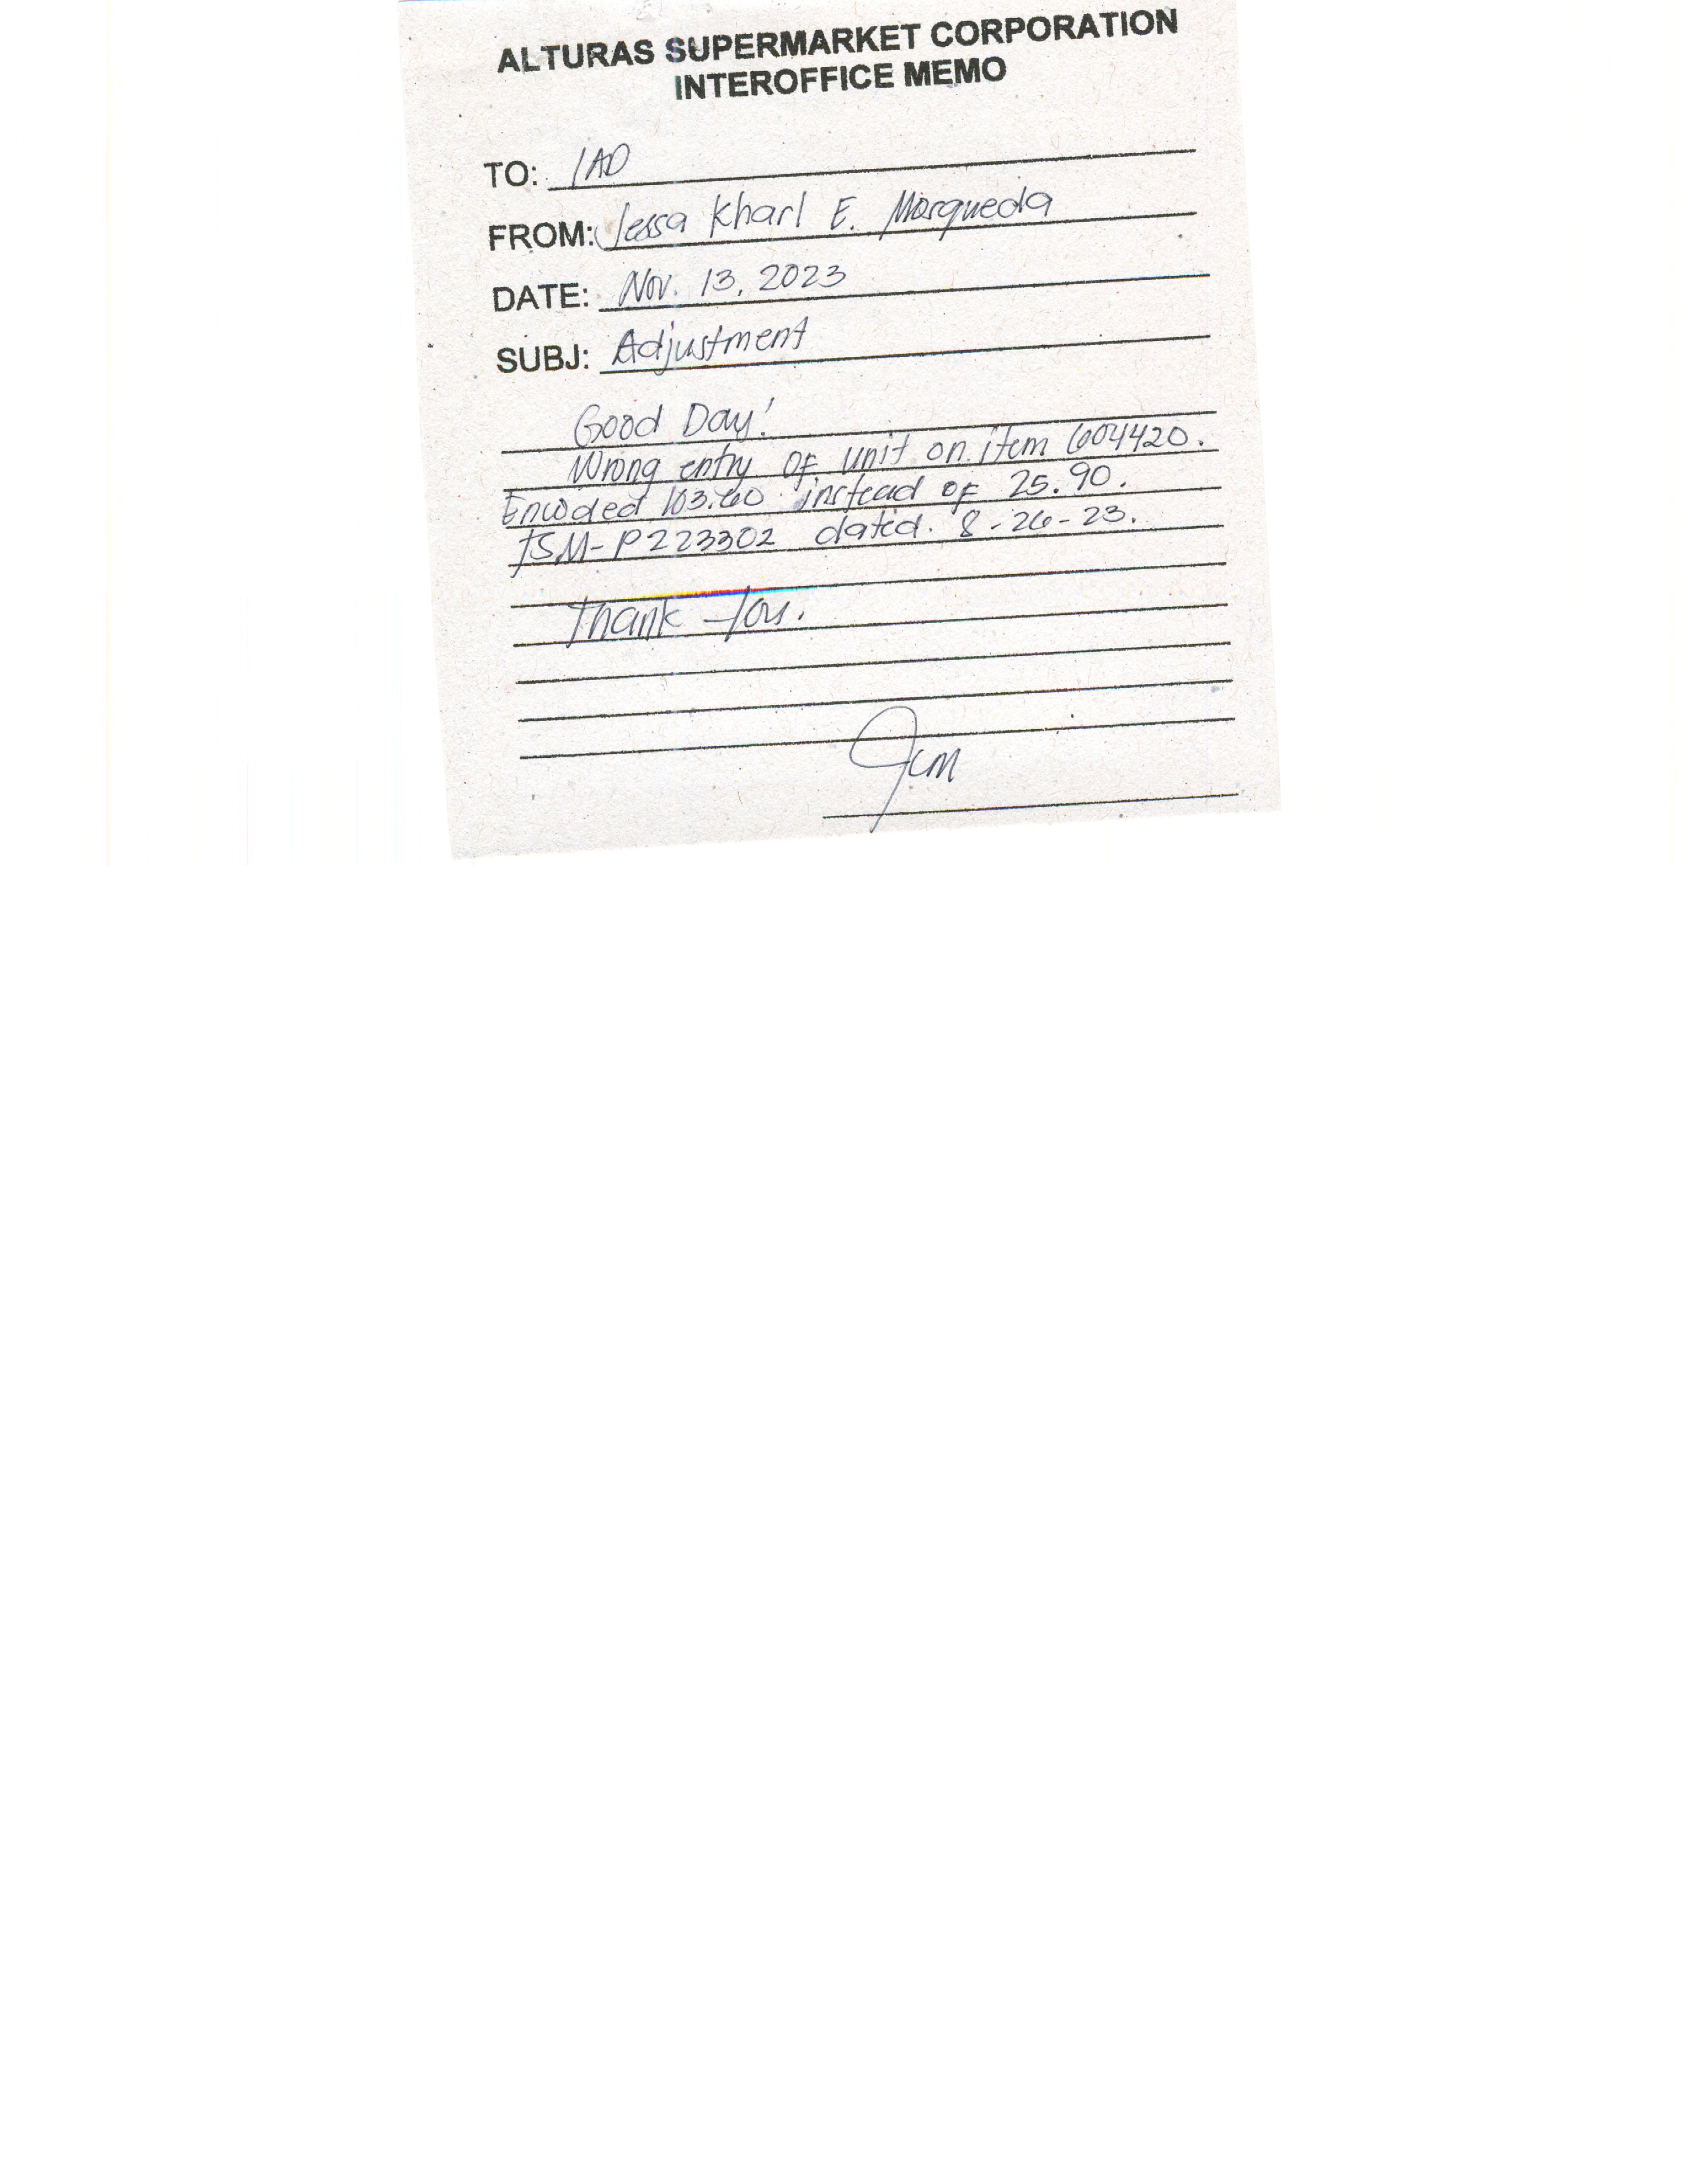 ALTURAS SUPERMARKET CORPORATION
INTEROFFICE MEMO
TO: IAD
FROM: Jessa Kharl E. Morqueda
DATE: Nov. 13, 2023
SUBJ: Adjustment
Good Day!
Wrong entry of unit on item 604420.
Encoded 103.60 instead of 25.90.
ISM-P223302 dated. 8-26-23.
Thank You.
Jcm